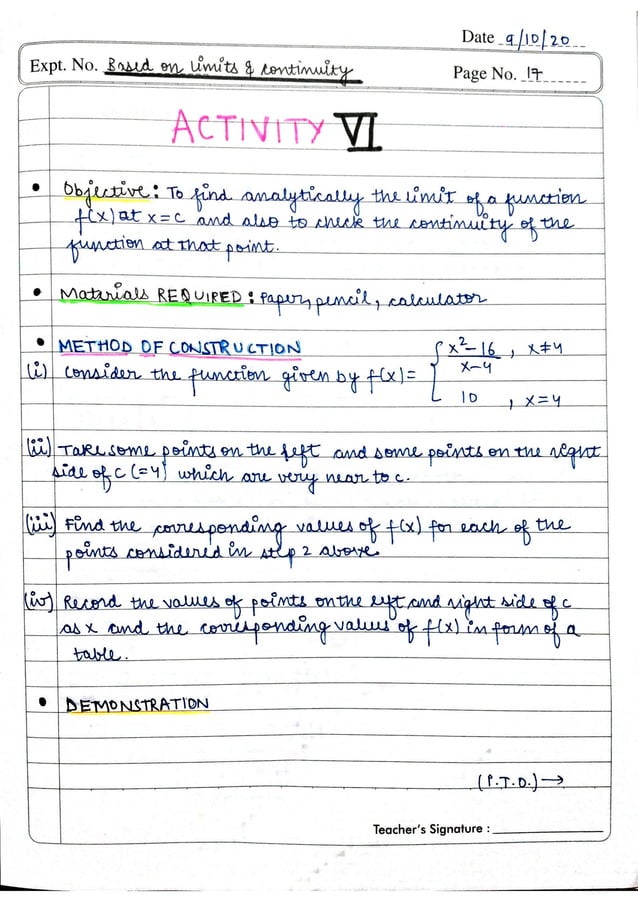 Date 9/10/20
Expt. No. Based on limits & continuity
Page No. 17
ACTIVITY VI
• Objective: To find analytically the limit of a function
f(x) at x=c and also to check the continuity of the
function at that point.
• Materials REQUIRED: Paper, pencil, calculator
• METHOD OF CONSTRUCTION
(i) Consider the function given by f(x) = { x²-16 / x-4 , x≠4
10 , x=4
(ii) Take some points on the left and some points on the right
side of c (=4) which are very near to c.
(iii) Find the corresponding values of f(x) for each of the
points considered in step 2 above.
(iv) Record the values of points on the left and right side of c
as x and the corresponding values of f(x) in form of a
table.
• DEMONSTRATION
(P.T.O.) →
Teacher's Signature :